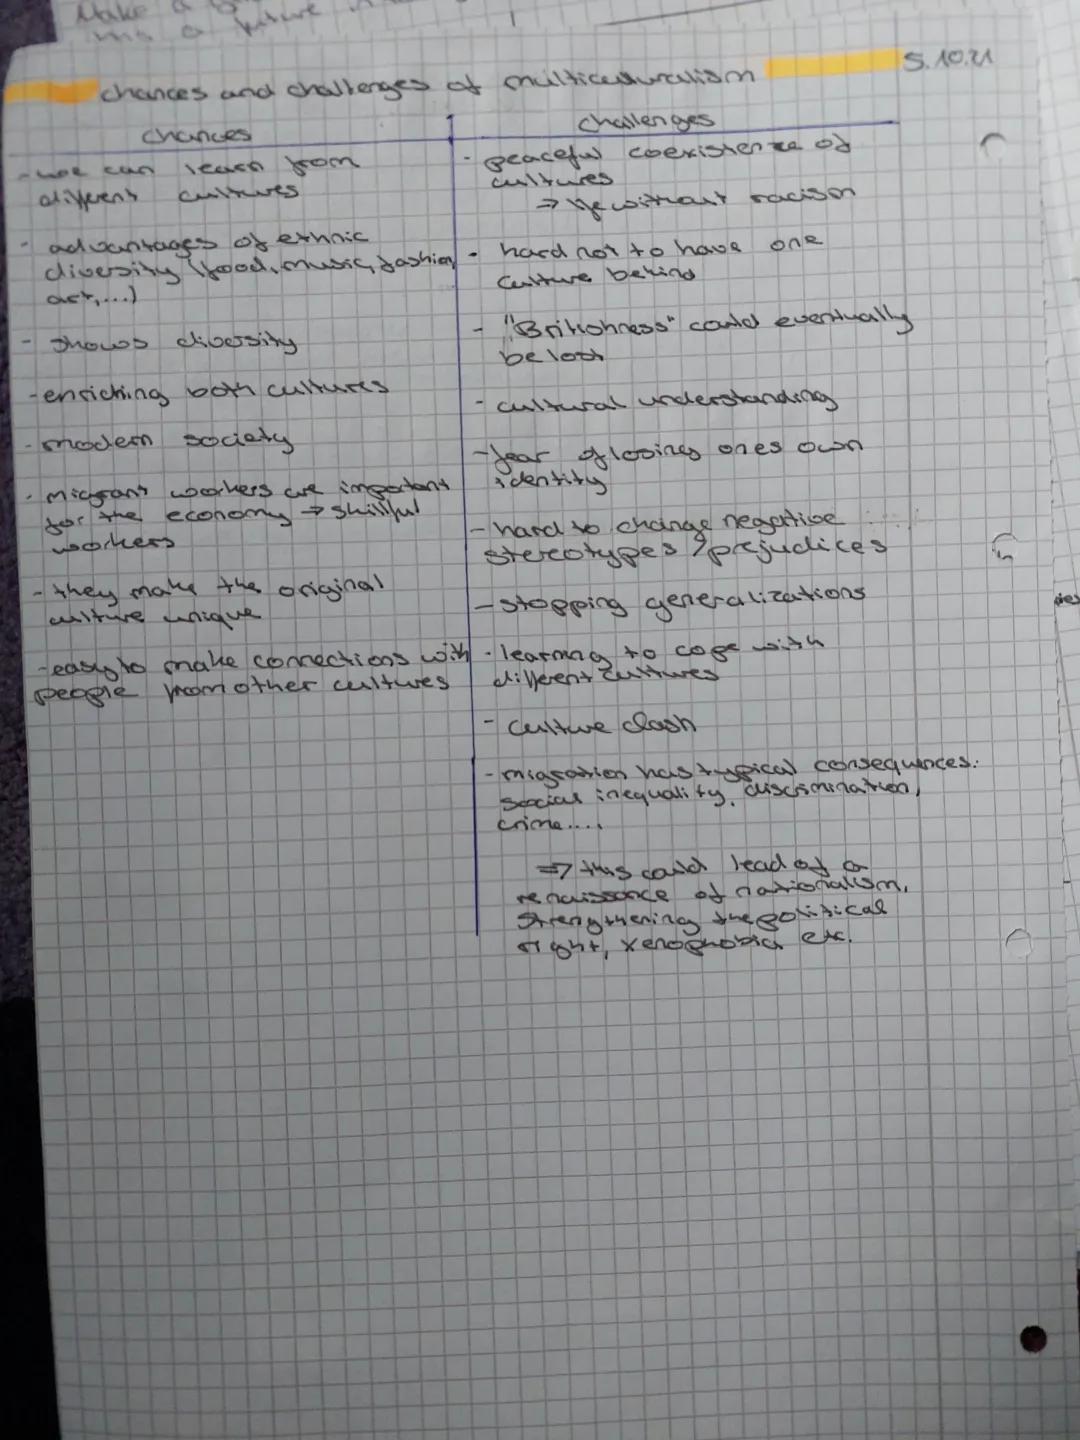 Make a
future
chances and challenges of multiculturalism
5.10.21
chances
- we can learn from
different cultures
- advantages of ethnic
diversity (food, music, fashion,
art,...)
- shows diversity
- enriching both cultures
- modern society
- migrant workers are important
for the economy → skillful
workers
- they make the original
culture unique
- easy to make connections with
people from other cultures
challenges
- peaceful coexistence of
cultures
⇒ life without racism
- hard not to have one
culture behind
- "Britishness" could eventually
be lost
- cultural understanding
- fear of losing ones own
identity
- hard to change negative
stereotypes / prejudices
- stopping generalizations
- learning to cope with
different cultures
- culture clash
- migration has typical consequences:
social inequality, discrimination,
crime....
⇒ this could lead of a
renaissance of nationalism,
strengthening the political
right, xenophobia etc.